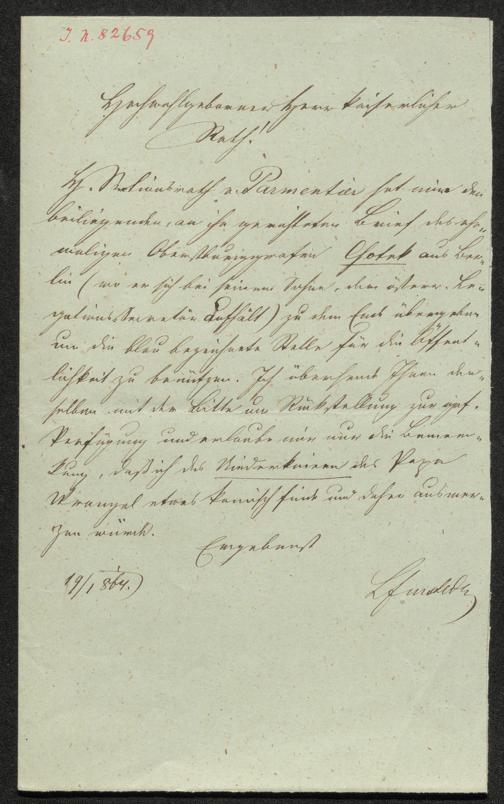 J. N. 82659
Hochwohlgeborner Herr kaiserlicher
Rath!
H. Sektionsrath v. Parmentier hat mir den
beiliegenden, an ihn gerichteten Brief des ehe-
maligen Oberstburggrafen Chotek aus Ber-
lin (wo er sich bei seinem Sohne, dem österr. Le-
gationssecretär aufhält) zu dem Ende übergeben
um die blau bezeichnete Stelle für die Öffent-
lichkeit zu benützen. Ich übersende Ihnen den-
selben mit der Bitte um Rückstellung zur gef.
Verfügung und erlaube mir nur die Bemer-
kung, daß ich das Niederknieen des Papa
Wrangel etwas komisch finde und daher ausmer-
zen würde.
Ergebenst
19/1 864.)